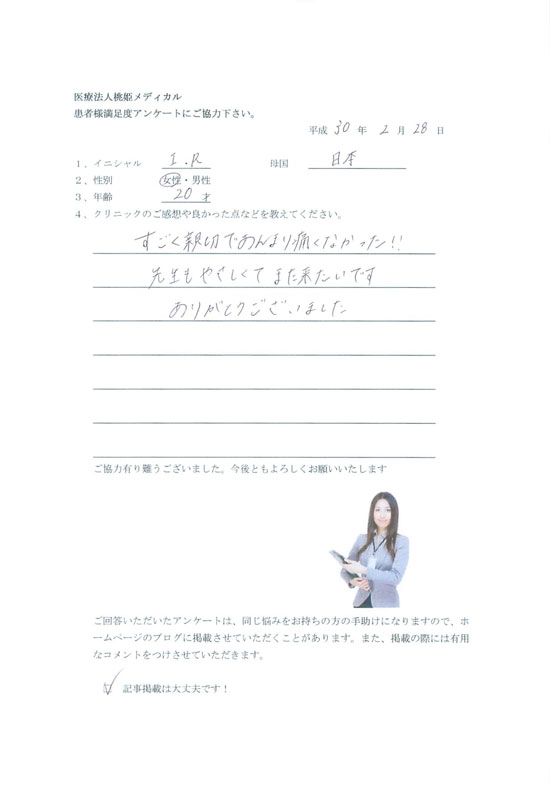 医療法人桃姫メディカル
患者様満足度アンケートにご協力下さい。
平成 30 年 2 月 28 日
1、イニシャル I.R 母国 日本
2、性別 女性・男性
3、年齢 20 才
4、クリニックのご感想や良かった点などを教えてください。
すごく親切であんまり痛くなかった!!
先生もやさしくてまた来たいです
ありがとうございました
ご協力有り難うございました。今後ともよろしくお願いいたします
ご回答いただいたアンケートは、同じ悩みをお持ちの方の手助けになりますので、ホ
ームページのブログに掲載させていただくことがあります。また、掲載の際には有用
なコメントをつけさせていただきます。
記事掲載は大丈夫です！